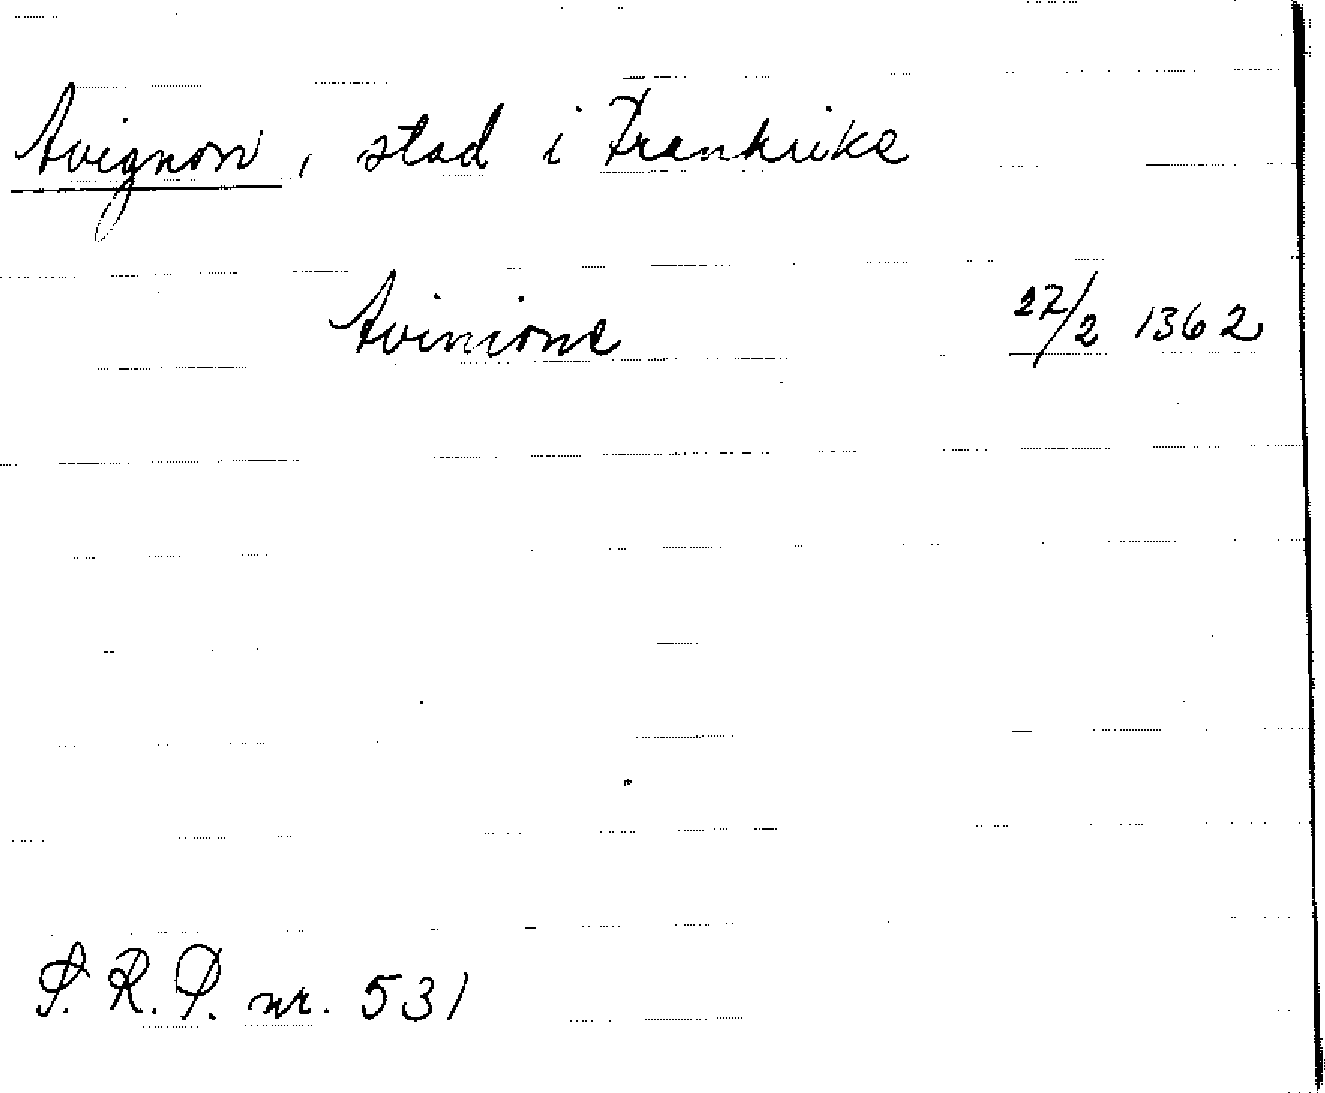 Avignon, stad i Frankrike
Avinione 27/2 1362
S.R.P. nr. 531